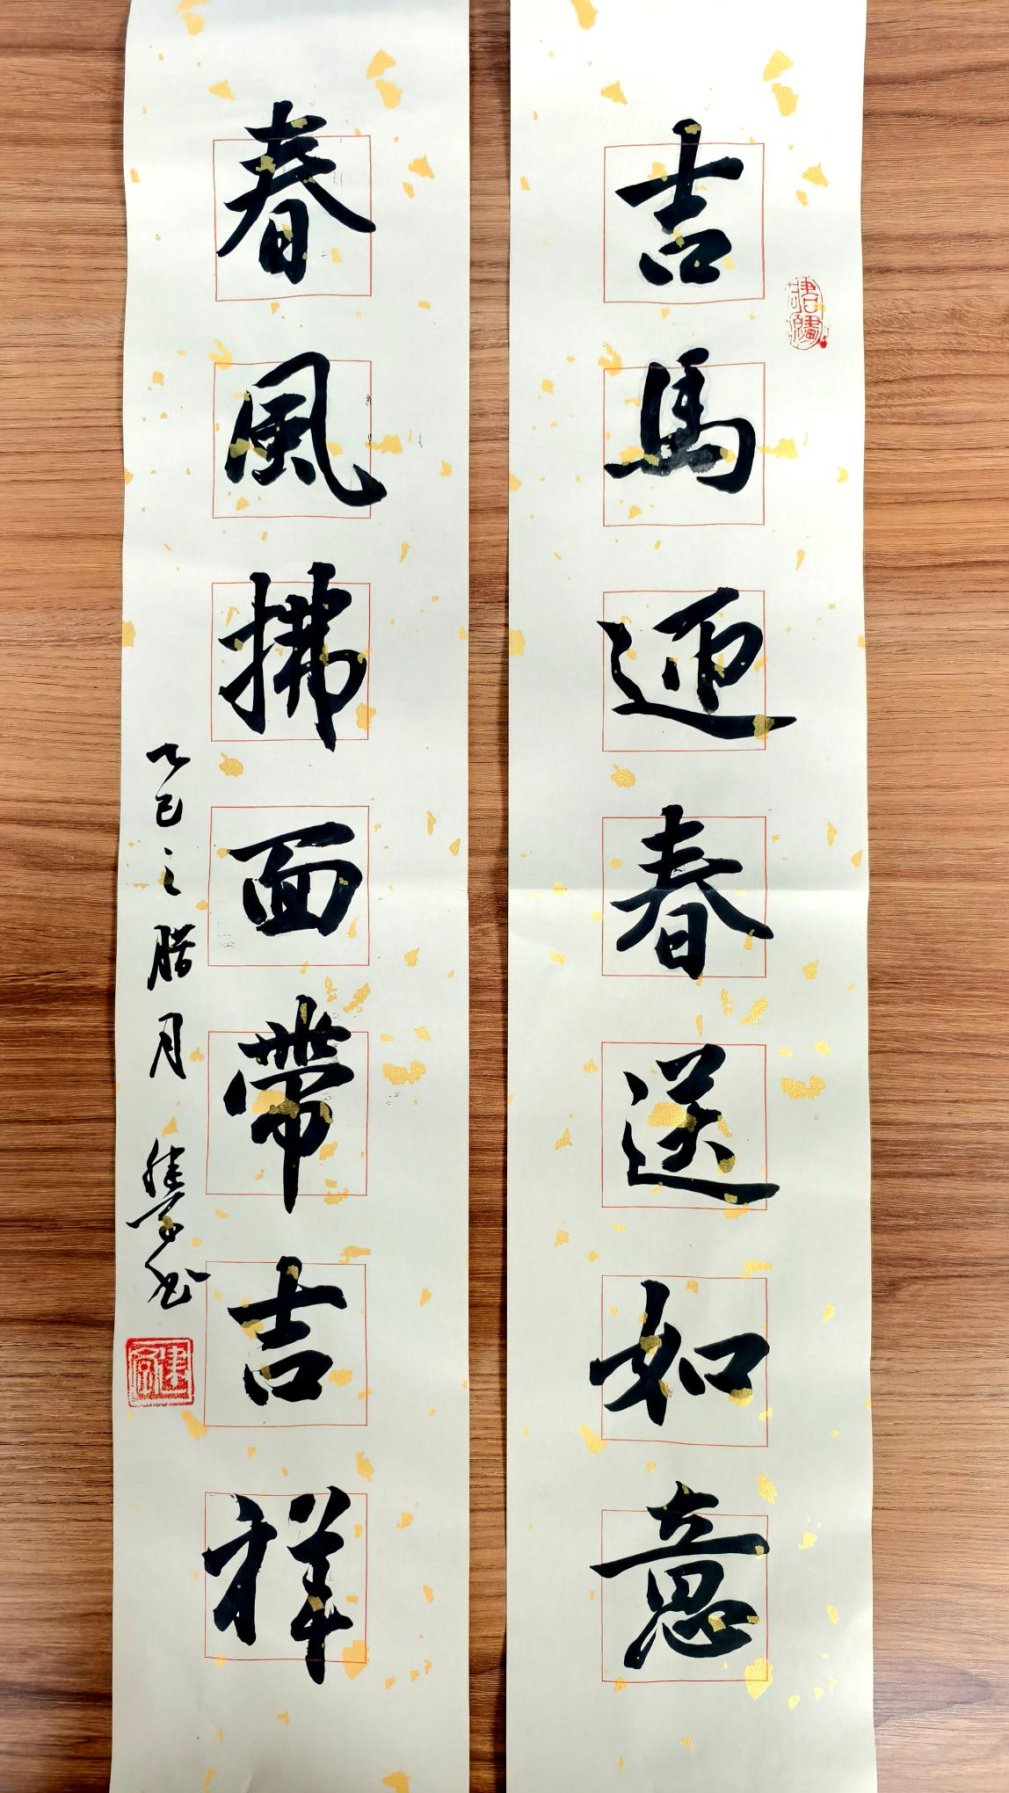 吉馬迎春送如意
春風拂面帶吉祥
乙巳之腊月